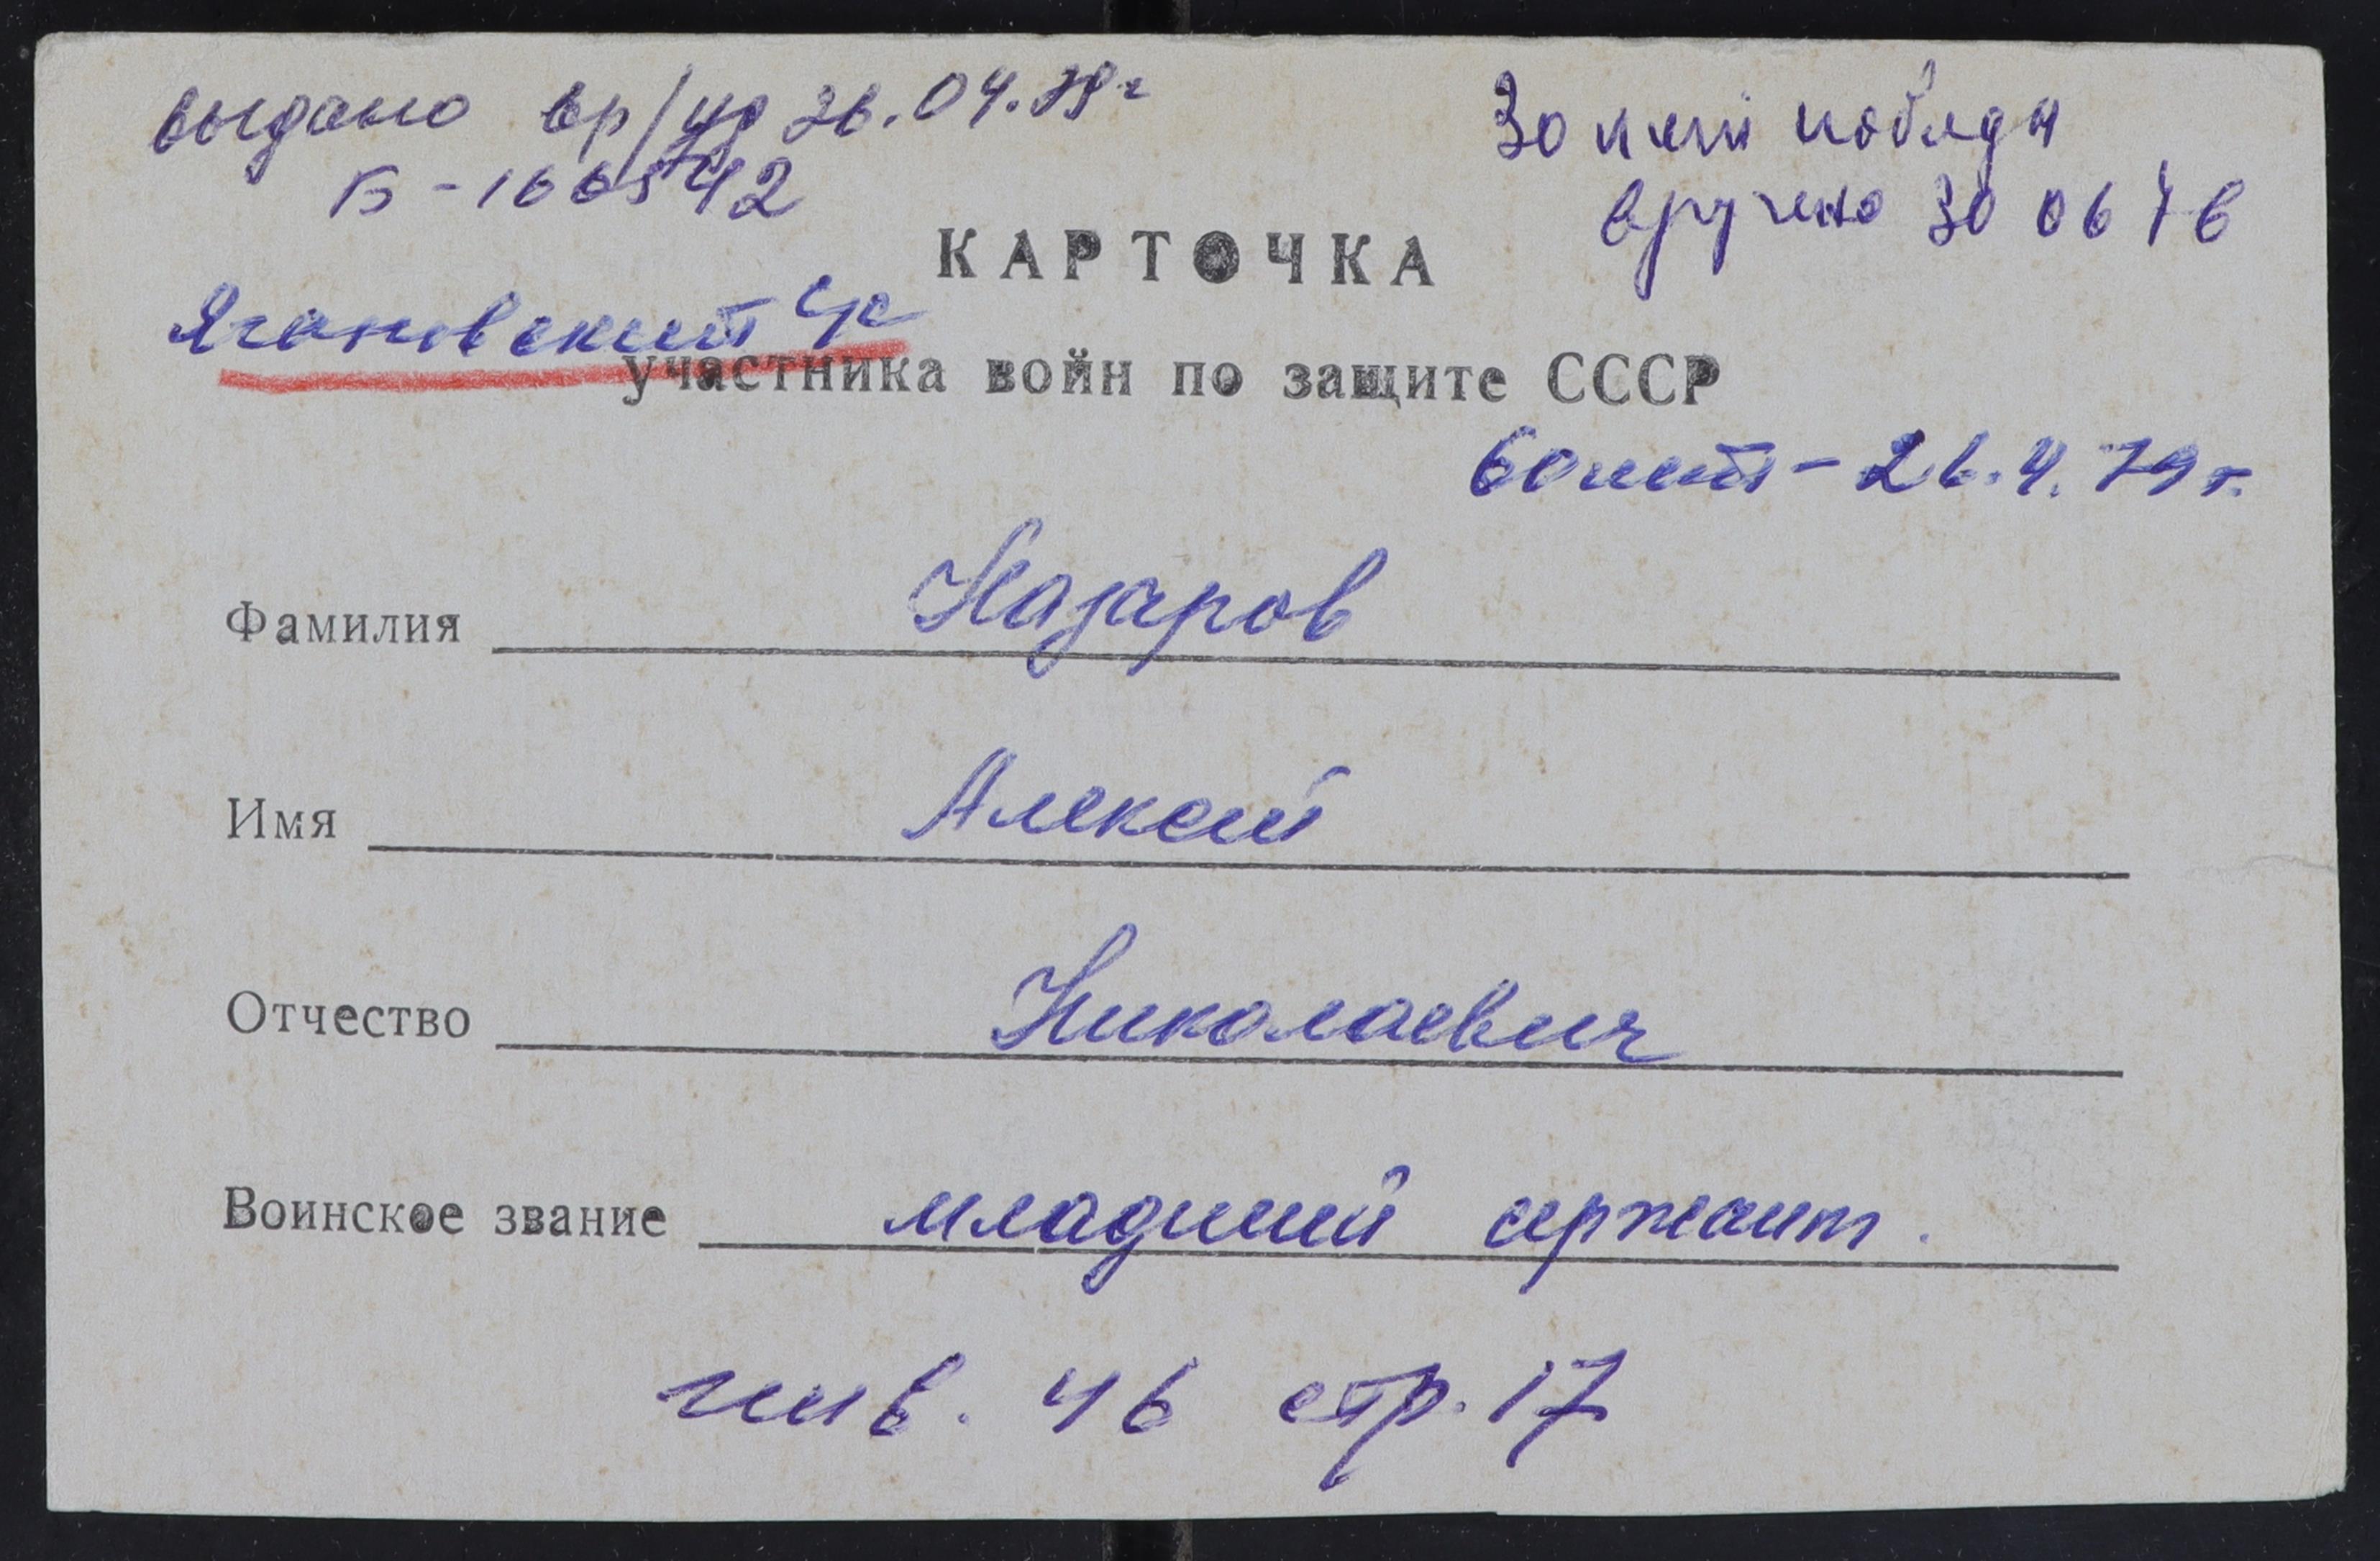 выдано вр/уд 26.04.79г
Б-166542
30 лет победы
вручено 30 06 76
КАРТОЧКА
Ягановский с/с
участника войн по защите СССР
60 лет - 26.4.79 г.
Фамилия Назаров
Имя Алексей
Отчество Николаевич
Воинское звание младший сержант.
инв. 46 стр. 17